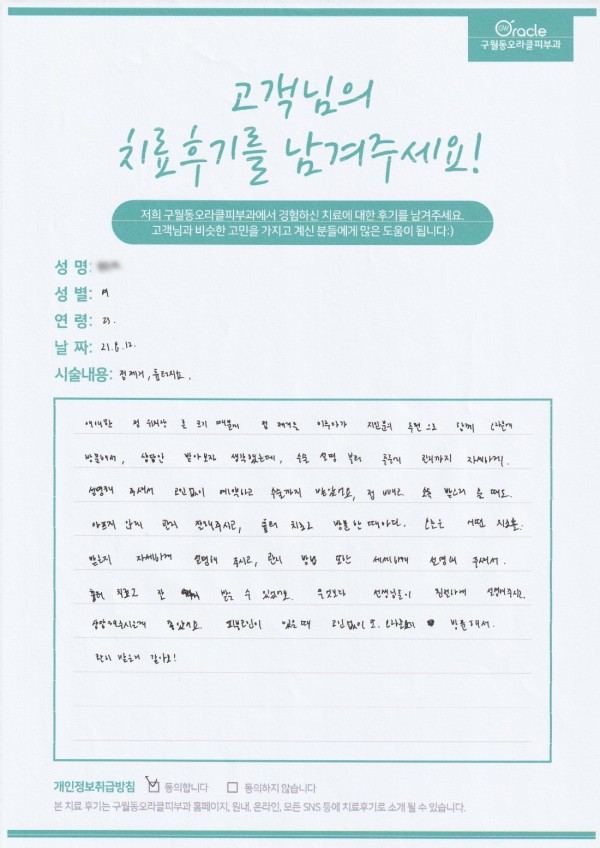 Oracle
구월동오라클피부과
고객님의
치료후기를 남겨주세요!
저희 구월동오라클피부과에서 경험하신 치료에 대한 후기를 남겨주세요.
고객님과 비슷한 고민을 가지고 계신 분들에게 많은 도움이 됩니다:)
성 명:
성 별: 여
연 령: 21.
날 짜: 21.8.12.
시술내용: 점제거, 흉터치료.
애매한 점 위치랑 큰 크기 때문에 점 제거를 미루다가 지인분의 추천으로 함께 오라클에
방문해서, 상담만 받아보자 생각했는데, 수술 설명 부터 추후에 관리까지 자세하게.
설명해 주셔서 고민없이 예약하고 수술까지 받았어요, 점 빼고 소독 받으러 올 때도.
아프지 않게 관리 진행해주시고, 흉터 치료로 방문한 때마다. 오늘은 어떤 치료를.
받는지 자세하게 설명해 주시고, 관리 방법 또한 세세하게 설명해 주셔서.
흉터 치료도 잘 받을 수 있었어요. 무엇보다 선생님들이 친절하게 설명해주시고.
상담해주시는게 좋았어요. 피부고민이 있을 때 고민없이 또. 오라클에 방문해서.
관리 받을거 같아요!
개인정보취급방침 동의합니다 동의하지 않습니다
본 치료 후기는 구월동오라클피부과 홈페이지, 원내, 온라인, 모든 SNS 등에 치료후기로 소개 될 수 있습니다.